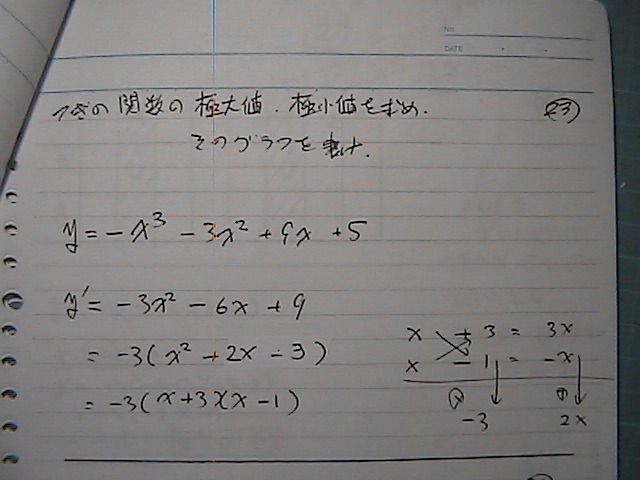 No.
DATE
つぎの関数の極大値.極小値を求め. 
そのグラフを書け.
y = -x³ - 3x² + 9x + 5
y' = -3x² - 6x + 9
= -3(x² + 2x - 3)
= -3(x+3)(x-1)
x + 3 = 3x
x - 1 = -x
-3 2x